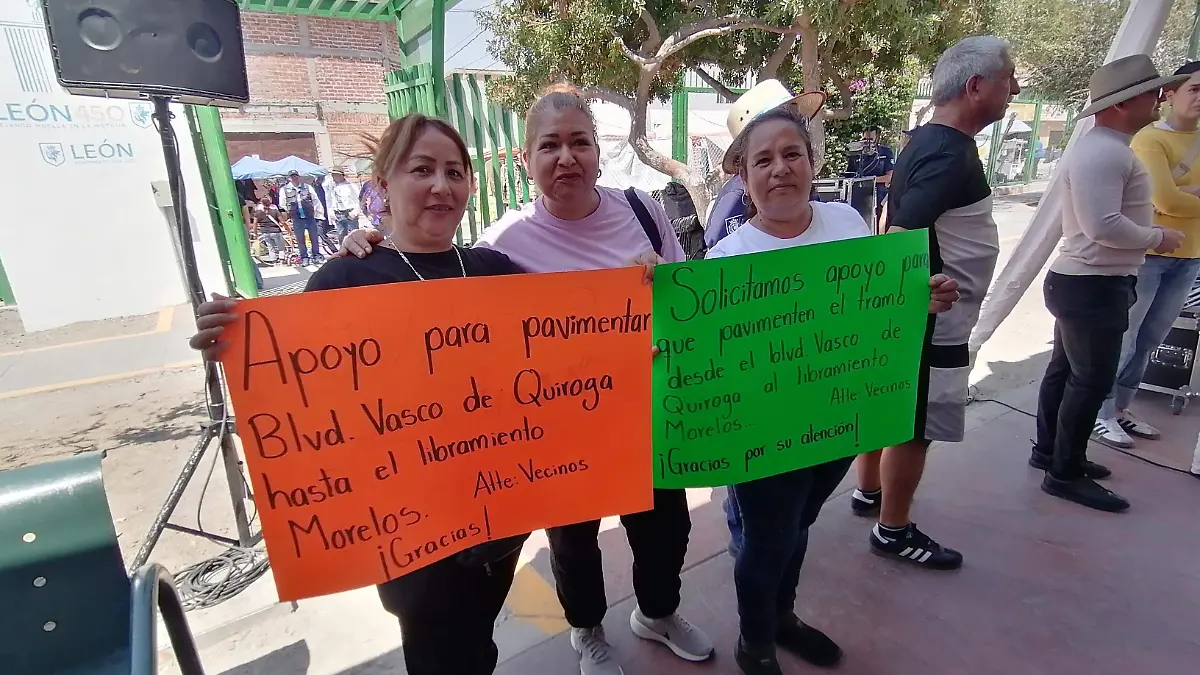 LEÓN 450
LEÓN
Apoyo para pavimentar
Blvd. Vasco de Quiroga
hasta el libramiento
Morelos.
Atte: Vecinos
¡Gracias!
Solicitamos apoyo para
que pavimenten el tramo
desde el blvd. Vasco de
Quiroga al libramiento
Morelos...
Atte Vecinos
¡Gracias por su atención!